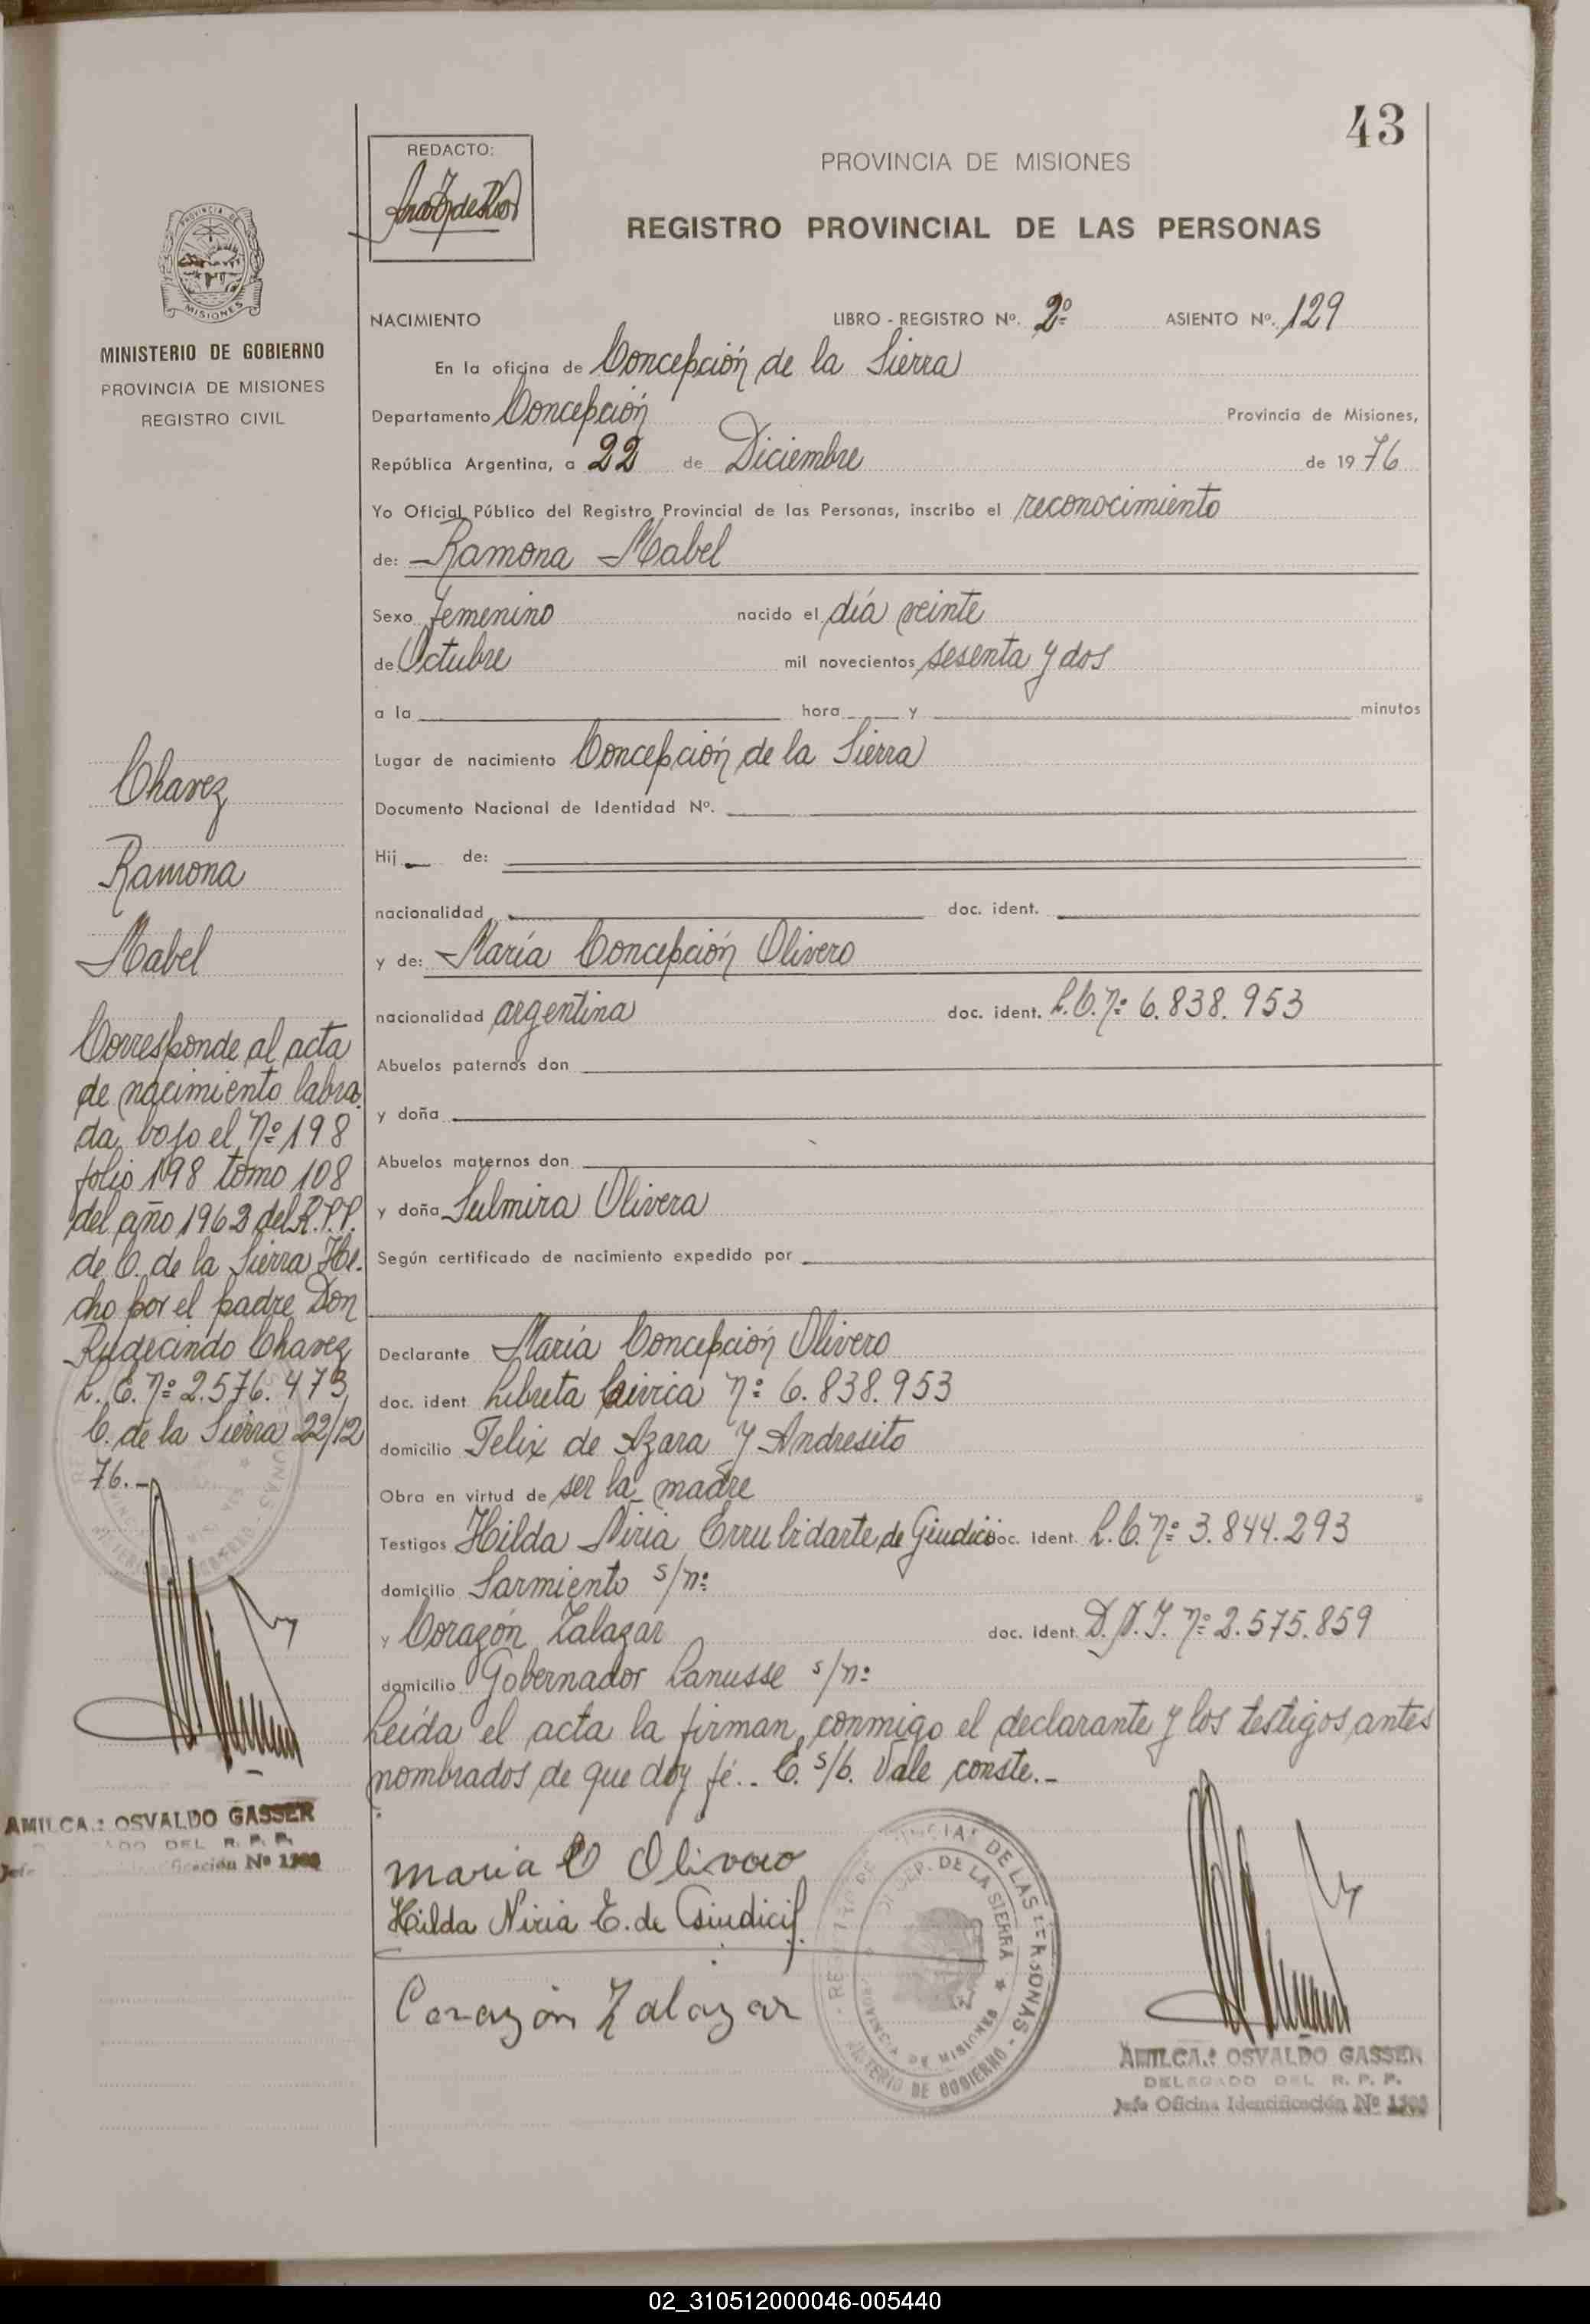 43
REDACTO:
PROVINCIA DE MISIONES
REGISTRO PROVINCIAL DE LAS PERSONAS
PROVINCIA DE
MISIONES
MINISTERIO DE GOBIERNO
PROVINCIA DE MISIONES
REGISTRO CIVIL
NACIMIENTO LIBRO - REGISTRO Nº. 2º ASIENTO Nº. 129
En la oficina de Concepción de la Sierra
Departamento Concepción Provincia de Misiones,
República Argentina, a 22 de Diciembre de 1976
Yo Oficial Público del Registro Provincial de las Personas, inscribo el reconocimiento
de: Ramona Mabel
Sexo femenino nacido el día veinte
de Octubre mil novecientos sesenta y dos
a la hora y minutos
Lugar de nacimiento Concepción de la Sierra
Documento Nacional de Identidad Nº.
Hij de:
nacionalidad doc. ident.
y de: María Concepción Olivero
nacionalidad argentina doc. ident. L.C. nº 6.838.953
Abuelos paternos don
y doña
Abuelos maternos don
y doña Sulmira Olivera
Según certificado de nacimiento expedido por
Declarante María Concepción Olivero
doc. ident Libreta Cívica nº 6.838.953
domicilio Felix de Azara y Andresito
Obra en virtud de ser la madre
Testigos Hilda Niria Errubidarte de Giudici doc. Ident. L.C. nº 3.844.293
domicilio Sarmiento s/nº
y Corazón Zalazar doc. Ident. D.N.I. nº 2.575.859
domicilio Gobernador Lanusse s/nº
Leída el acta la firman conmigo el declarante y los testigos antes
nombrados de que doy fé.- C. s/b. Vale conste.-
Chavez
Ramona
Mabel
Corresponde al acta
de nacimiento labra
da bajo el Nº 198
folio 198 tomo 108
del año 1962 del R.P.P.
de C. de la Sierra He-
cho por el padre Don
Rudecindo Chavez
L.E. nº 2.576.473
C. de la Sierra 22/12
76.-
AMILCAR OSVALDO GASSER
DEL R. P. P.
Nº
maria C Olivero
Hilda Niria E. de Giudici
Corazón Zalazar
DE LAS PERSONAS
DE LA SIERRA
PROVINCIA DE MISIONES
MINISTERIO DE GOBIERNO
AMILCAR OSVALDO GASSER
DELEGADO DEL R. P. P.
Jefe Oficina Identificación Nº
02_310512000046-005440